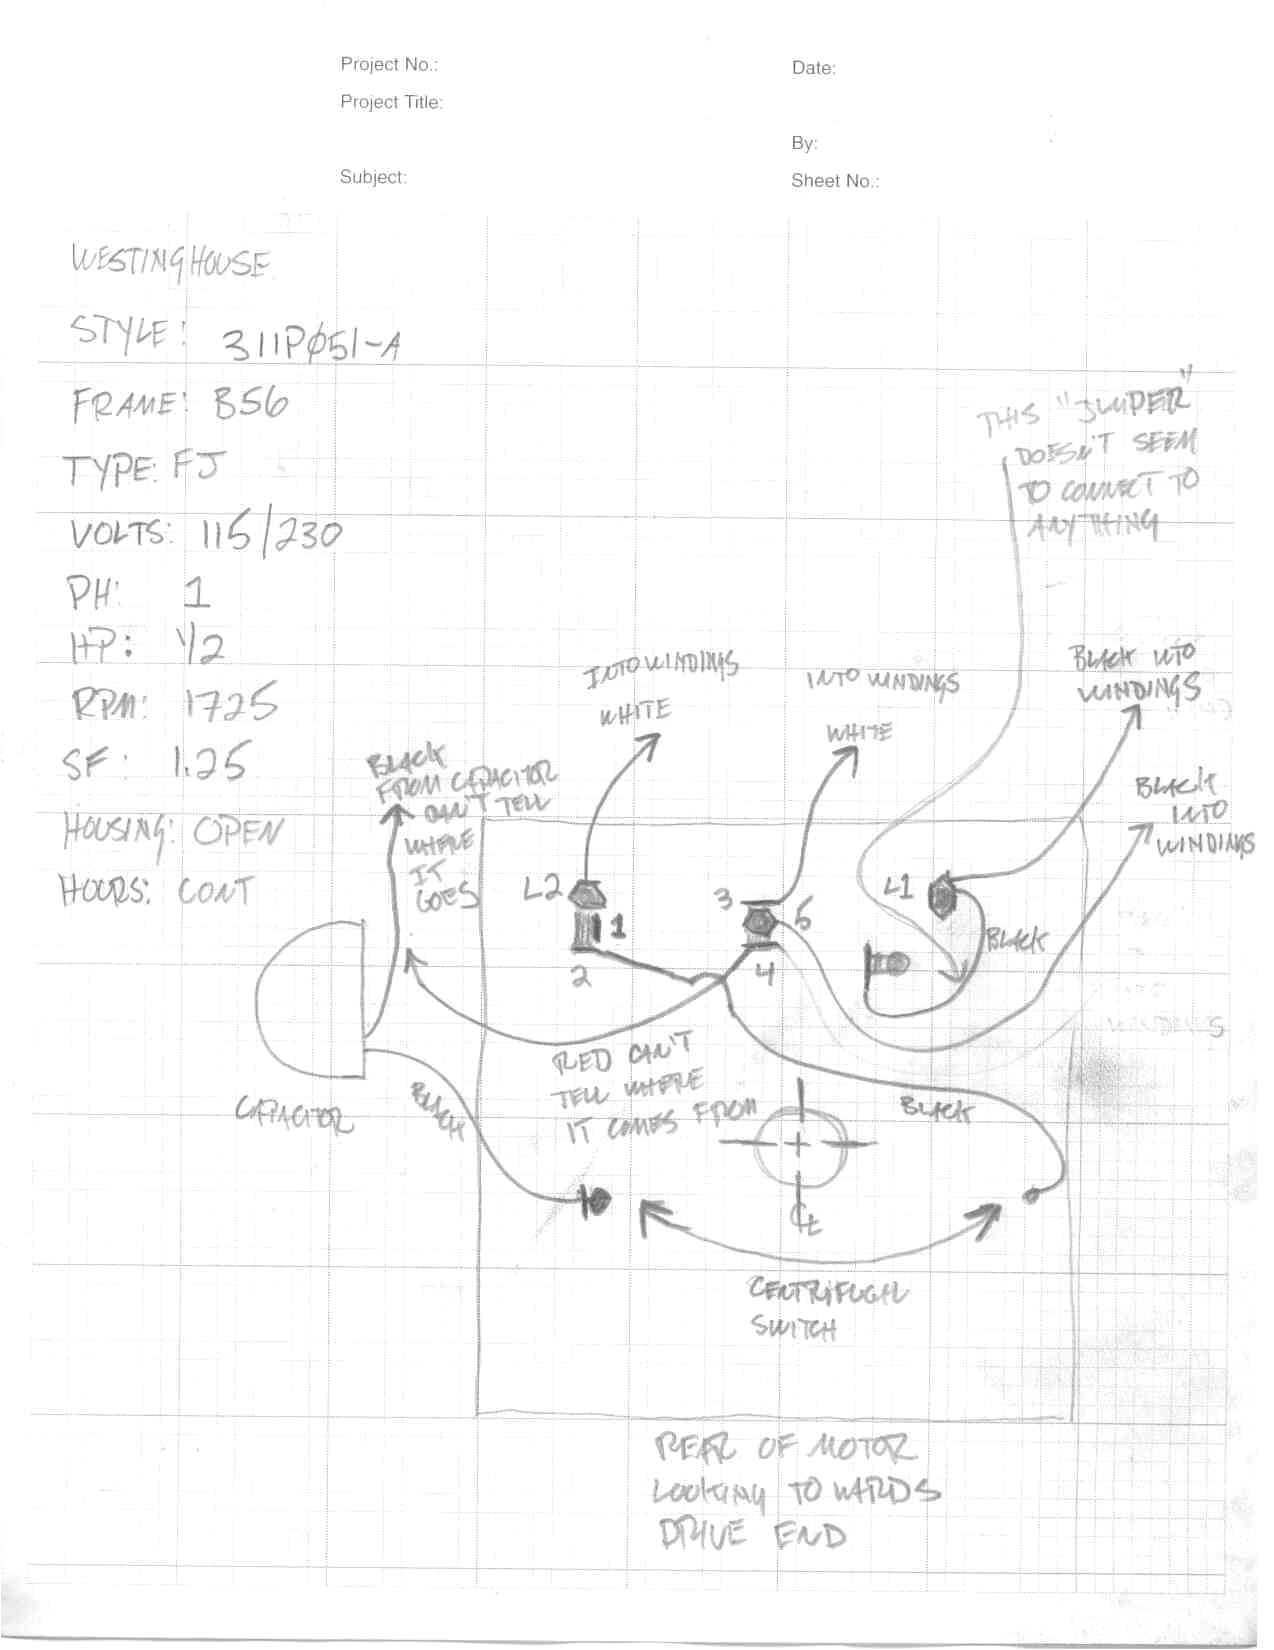 Project No.:
Date:
Project Title:
By:
Subject:
Sheet No.:
WESTINGHOUSE
STYLE: 311PØ51-A
FRAME: B56
TYPE: FJ
VOLTS: 115/230
PH: 1
HP: 1/2
RPM: 1725
SF: 1.25
HOUSING: OPEN
HOURS: CONT
THIS "JUMPER"
DOESN'T SEEM
TO CONNECT TO
ANYTHING
INTO WINDINGS
WHITE
INTO WINDINGS
WHITE
BLACK INTO
WINDINGS
BLACK
INTO
WINDINGS
BLACK
FROM CAPACITOR
CAN'T TELL
WHERE
IT
GOES
L2
1
2
3
5
4
L1
BLACK
RED CAN'T
TELL WHERE
IT COMES FROM
BLACK
CAPACITOR
BLACK
CL
CENTRIFUGAL
SWITCH
REAR OF MOTOR
LOOKING TOWARDS
DRIVE END